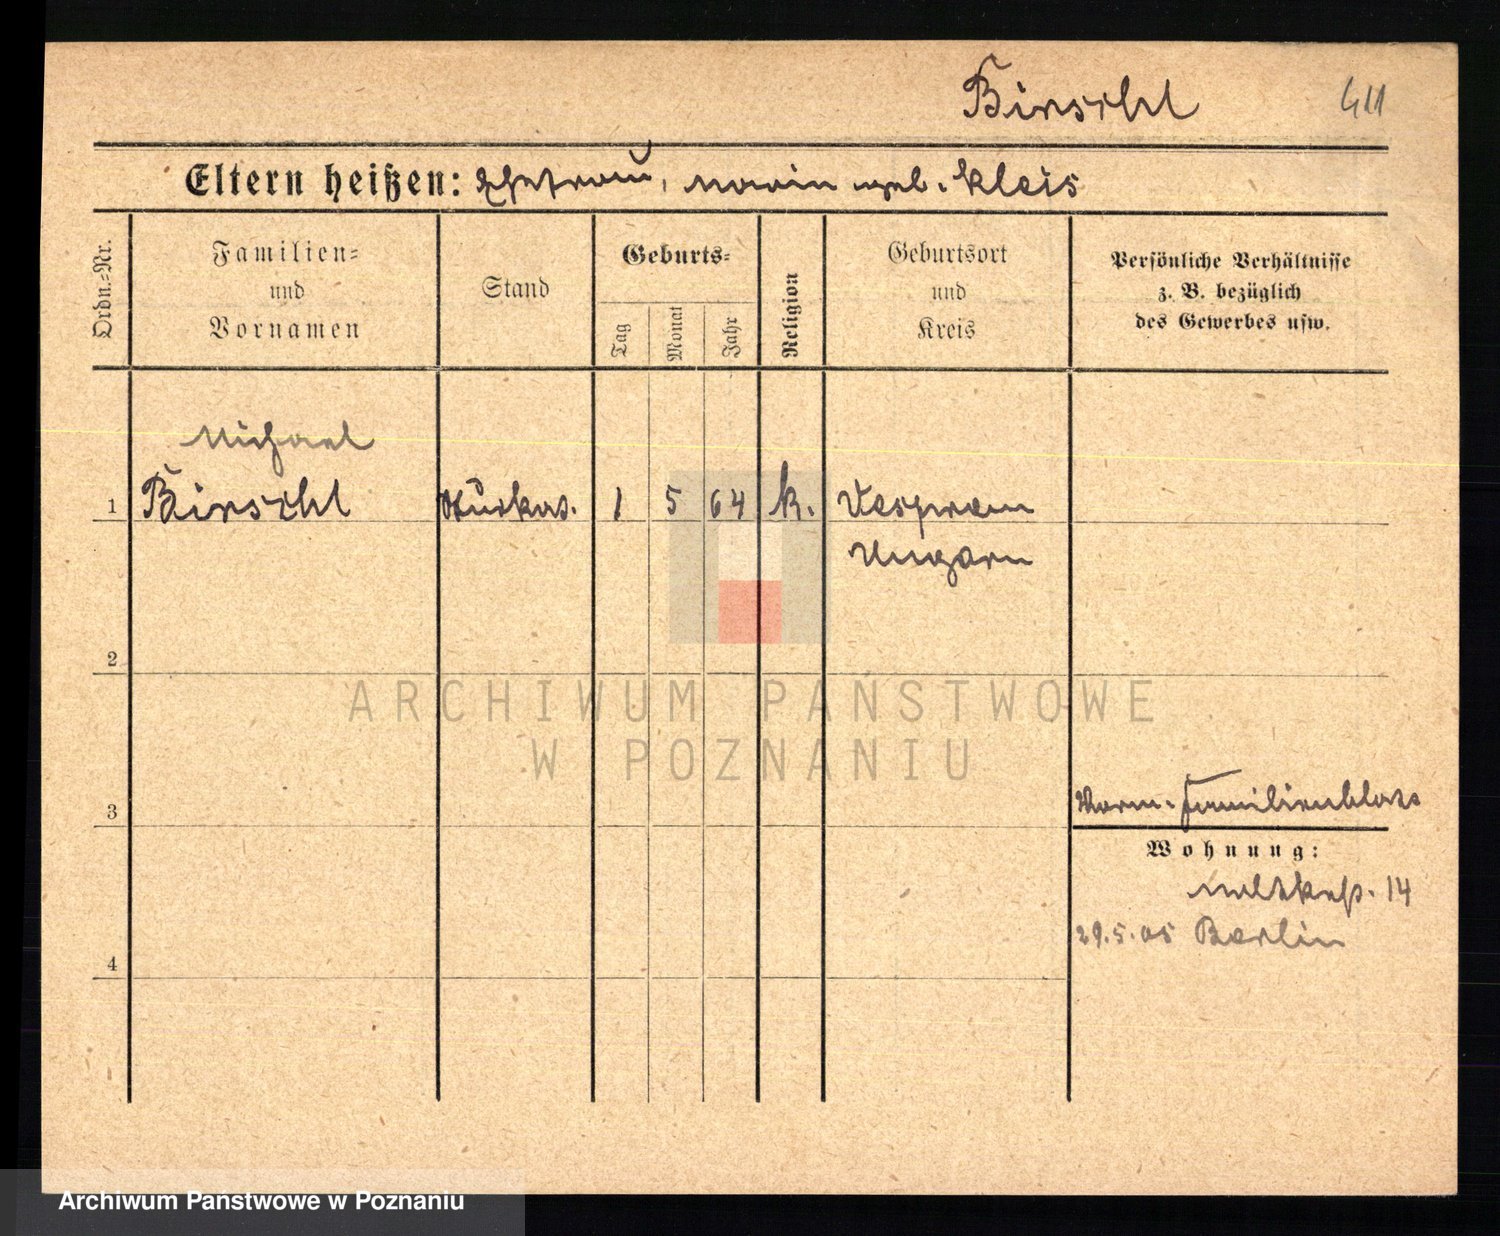 Birschl 411
Eltern heißen: Ehefrau, Marie geb. Kleis
Ordn.-Nr.
Familien-
und
Vornamen
Stand
Geburts-
Tag
Monat
Jahr
Religion
Geburtsort
und
Kreis
Persönliche Verhältnisse
z. B. bezüglich
des Gewerbes usw.
Michael
1 Birschl 1 5 64 k. Vesprem
Ungarn
2
ARCHIWUM PAŃSTWOWE
W POZNANIU
3 Familienblatt
Wohnung:
Moltkestr. 14
29.5.05 Berlin
4
Archiwum Państwowe w Poznaniu